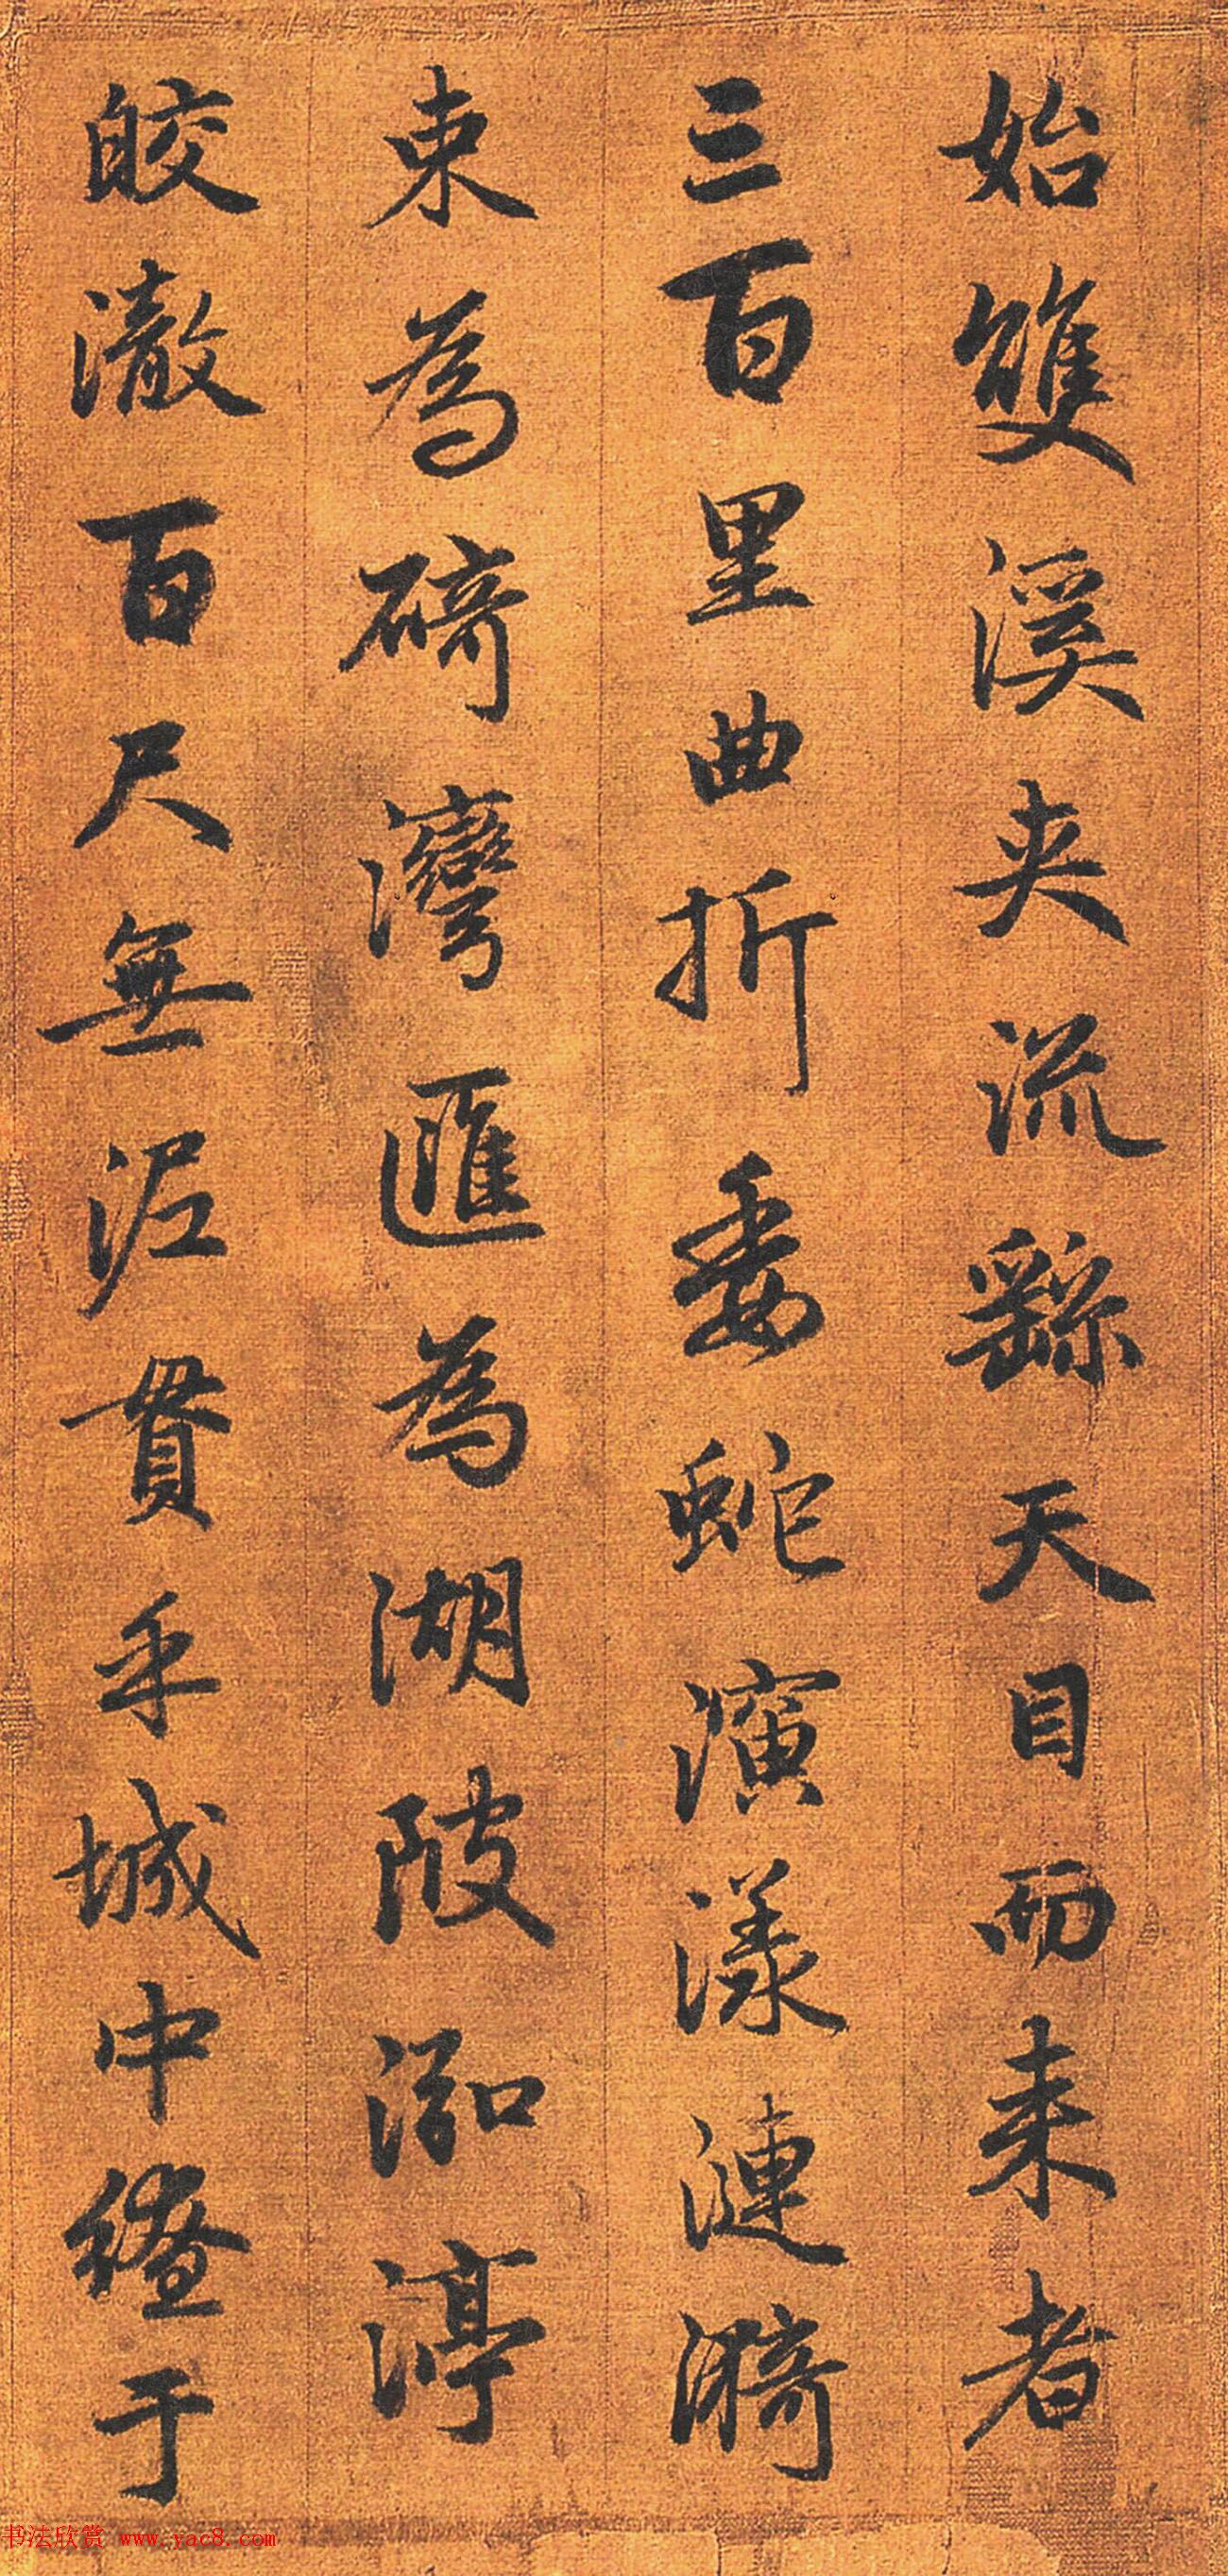 始雙溪夾流繇天目而来者
三百里曲折委蛇演漾漣漪
東為碕灣匯為湖陂泓渟
皎澈百尺無泥貫乎城中繚于
书法欣赏 www.yac8.com